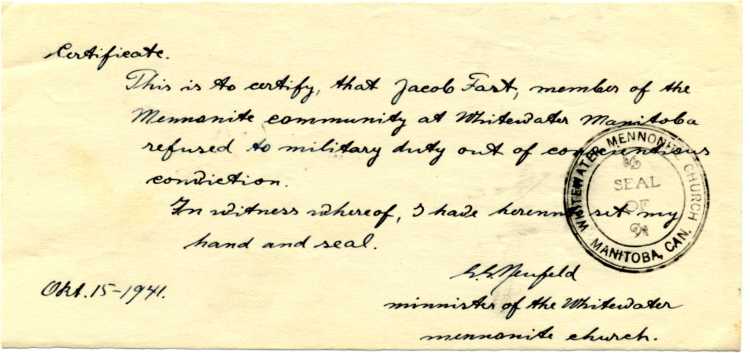 Certificate.
This is to certify, that Jacob Fast, member of the
Mennonite community at Whitewater Manitoba
refused to military duty out of conscientious
conviction.
In witness whereof, I have hereunto set my
hand and seal.
WHITEWATER MENNONITE CHURCH
SEAL
OF
MANITOBA, CAN.
G.G. Neufeld
Okt. 15-1941.
minnister of the Whitewater
mennonite church.